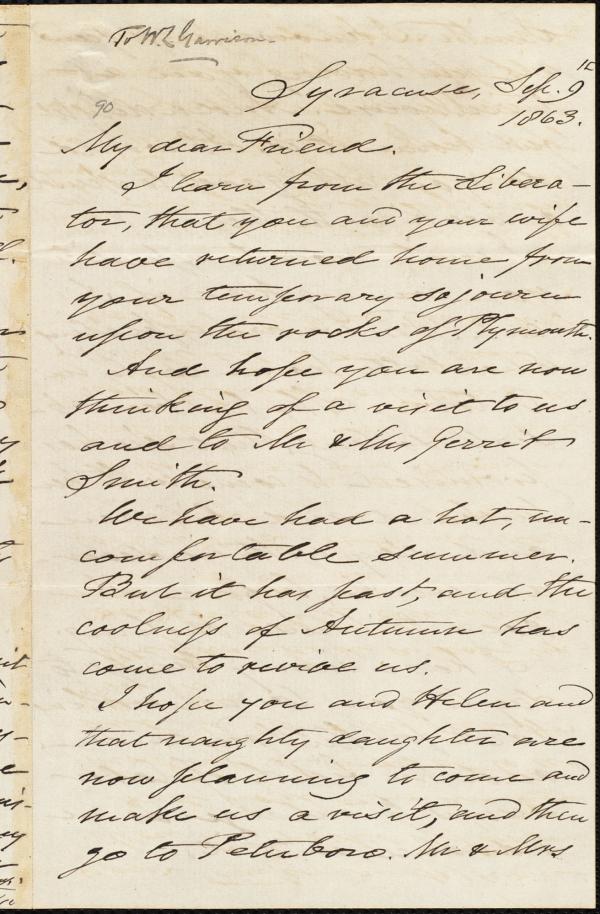 To W. L. Garrison.
Syracuse, Sep. 9th
1863.
90
My dear Friend.
I learn from the Libera-
tor, that you and your wife
have returned home from
your temporary sojourn
upon the rocks of Plymouth.
And hope you are now
thinking of a visit to us
and to Mr & Mrs Gerrit
Smith.
We have had a hot, un-
comfortable summer.
But it has past, and the
coolness of Autumn has
come to revive us.
I hope you and Helen and
that naughty daughter are
now planning to come and
make us a visit, and then
go to Peterboro. Mr & Mrs